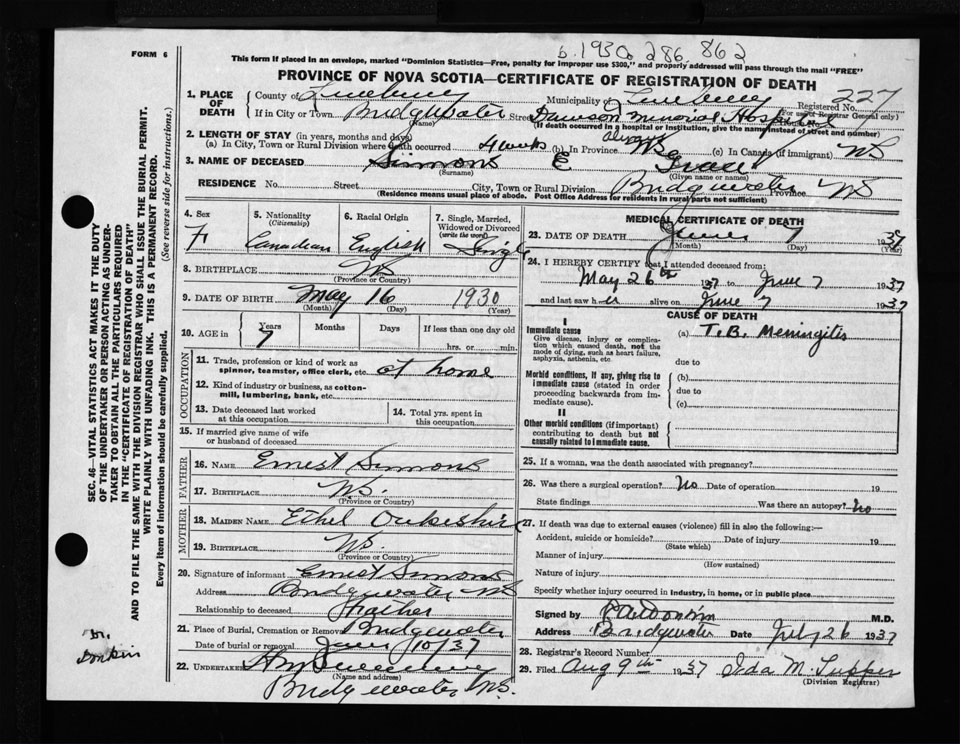 b. 1930 286 862
FORM 6
This form if placed in an envelope, marked "Dominion Statistics—Free, penalty for improper use $300," and properly addressed will pass through the mail "FREE"
PROVINCE OF NOVA SCOTIA—CERTIFICATE OF REGISTRATION OF DEATH
1. PLACE OF DEATH
County of Lunenburg Municipality of Lunenburg Registered No. 227
(For use of Registrar General only)
If in City, Town, or Bridgewater (Name) Street Dawson Memorial Hospital
(If death occurred in a hospital or institution, give the name instead of street and number)
2. LENGTH OF STAY (in years, months and days)
(a) In City, Town, or Rural Division where death occurred 4 weeks (b) In Province always (c) In Canada (if immigrant) NS
3. NAME OF DECEASED Simmons E Grace
(Surname) (Given name or names)
RESIDENCE No. Street City, Town or Rural Division Bridgewater Province NS
(Residence means usual place of abode. Post Office Address for residents in rural parts not sufficient)
4. Sex F
5. Nationality (Citizenship) Canadian
6. Racial Origin English
7. Single, Married, Widowed or Divorced (write the word) Single
8. BIRTHPLACE NS
(Province or Country)
9. DATE OF BIRTH May 16 1930
(Month) (Day) (Year)
10. AGE in Years Months Days If less than one day old
7 hrs. or min.
OCCUPATION
11. Trade, profession or kind of work as spinner, teamster, office clerk, etc. at home
12. Kind of industry or business, as cotton-mill, lumbering, bank, etc.
13. Date deceased last worked at this occupation
14. Total yrs. spent in this occupation
15. If married give name of wife or husband of deceased
FATHER
16. NAME Ernest Simmons
17. BIRTHPLACE N.S.
(Province or Country)
MOTHER
18. MAIDEN NAME Ethel
19. BIRTHPLACE N.S.
(Province or Country)
20. Signature of informant Ernest Simmons
Address Bridgewater NS
Relationship to deceased Father
21. Place of Burial, Cremation or Removal Bridgewater
Date of burial or removal June 10/37
22. UNDERTAKER
(Name and address)
Bridgewater N.S.
MEDICAL CERTIFICATE OF DEATH
23. DATE OF DEATH June 7 1937
(Month) (Day) (Year)
24. I HEREBY CERTIFY that I attended deceased from:
May 26th 1937 to June 7 1937
and last saw her alive on June 7 1937
CAUSE OF DEATH
I
Immediate cause (a) T.B. Meningitis
Give disease, injury or complication which caused death, not the mode of dying, such as heart failure, asphyxia, asthenia, etc.
due to
Morbid conditions, if any, giving rise to immediate cause (stated in order proceeding backwards from immediate cause).
(b)
due to
(c)
II
Other morbid conditions (if important) contributing to death but not causally related to immediate cause.
25. If a woman, was the death associated with pregnancy?
26. Was there a surgical operation? No Date of operation 19
State findings Was there an autopsy? No
27. If death was due to external causes (violence) fill in also the following:—
Accident, suicide or homicide? Date of injury 19
(State which)
Manner of injury
(How sustained)
Nature of injury
Specify whether injury occurred in industry, in home, or in public place
Signed by Donkin M.D.
Address Bridgewater Date July 26 1937
28. Registrar's Record Number
29. Filed Aug 9th 1937 Ida M. Tupper
(Division Registrar)
SEC. 46—VITAL STATISTICS ACT MAKES IT THE DUTY
OF THE UNDERTAKER OR PERSON ACTING AS UNDER-
TAKER TO OBTAIN ALL THE PARTICULARS REQUIRED
IN THE "CERTIFICATE OF REGISTRATION OF DEATH"
AND TO FILE THE SAME WITH THE DIVISION REGISTRAR WHO SHALL ISSUE THE BURIAL PERMIT.
WRITE PLAINLY WITH UNFADING INK. THIS IS A PERMANENT RECORD.
Every item of information should be carefully supplied.
(See reverse side for instructions.)
Dr.
Donkin